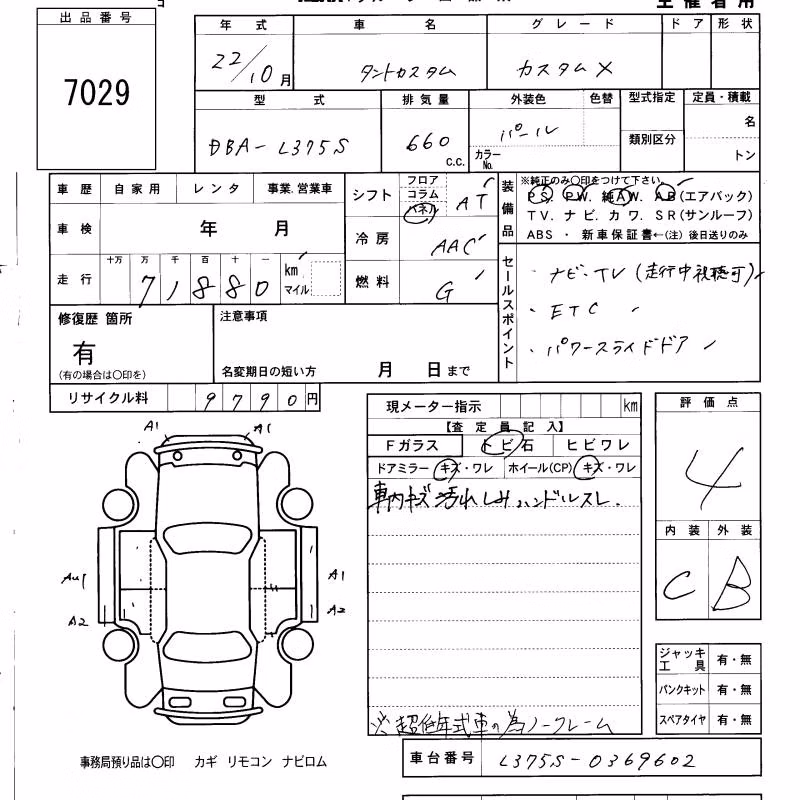 出品番号
7029
年式
22/10月
車名
タントカスタム
グレード
カスタムX
ドア
形状
型式
DBA-L375S
排気量
660
c.c.
外装色
パール
色替
カラーNo.
型式指定
類別区分
定員・積載
名
トン
車歴
自家用
レンタ
事業.営業車
車検
年 月
走行
十万 万 千 百 十 一
71880
km
マイル
シフト
フロア
コラム
パネル
AT
冷房
AAC
燃料
G
装備品
※純正のみ〇印をつけて下さい。
PS. PW. 純AW. AB(エアバック)
TV. ナビ. カワ. SR(サンルーフ)
ABS ・ 新車保証書←(注) 後日送りのみ
セールスポイント
・ナビ・TV(走行中視聴可)
・ETC
・パワースライドドア
修復歴 箇所
有
(有の場合は〇印を)
注意事項
名変期日の短い方 月 日まで
リサイクル料
9790円
現メーター指示
km
【査定員記入】
Fガラス
トビ石
ヒビワレ
ドアミラー キズ・ワレ
ホイール(CP) キズ・ワレ
車内キズ 汚れ しみ ハンドルスレ.
※超低年式車の為ノークレーム
評価点
4
内装
外装
C
B
ジャッキ
工具
有・無
パンクキット
有・無
スペアタイヤ
有・無
A1
A1
AU1
A2
A1
A2
事務局預り品は〇印 カギ リモコン ナビロム
車台番号
L375S-0369602